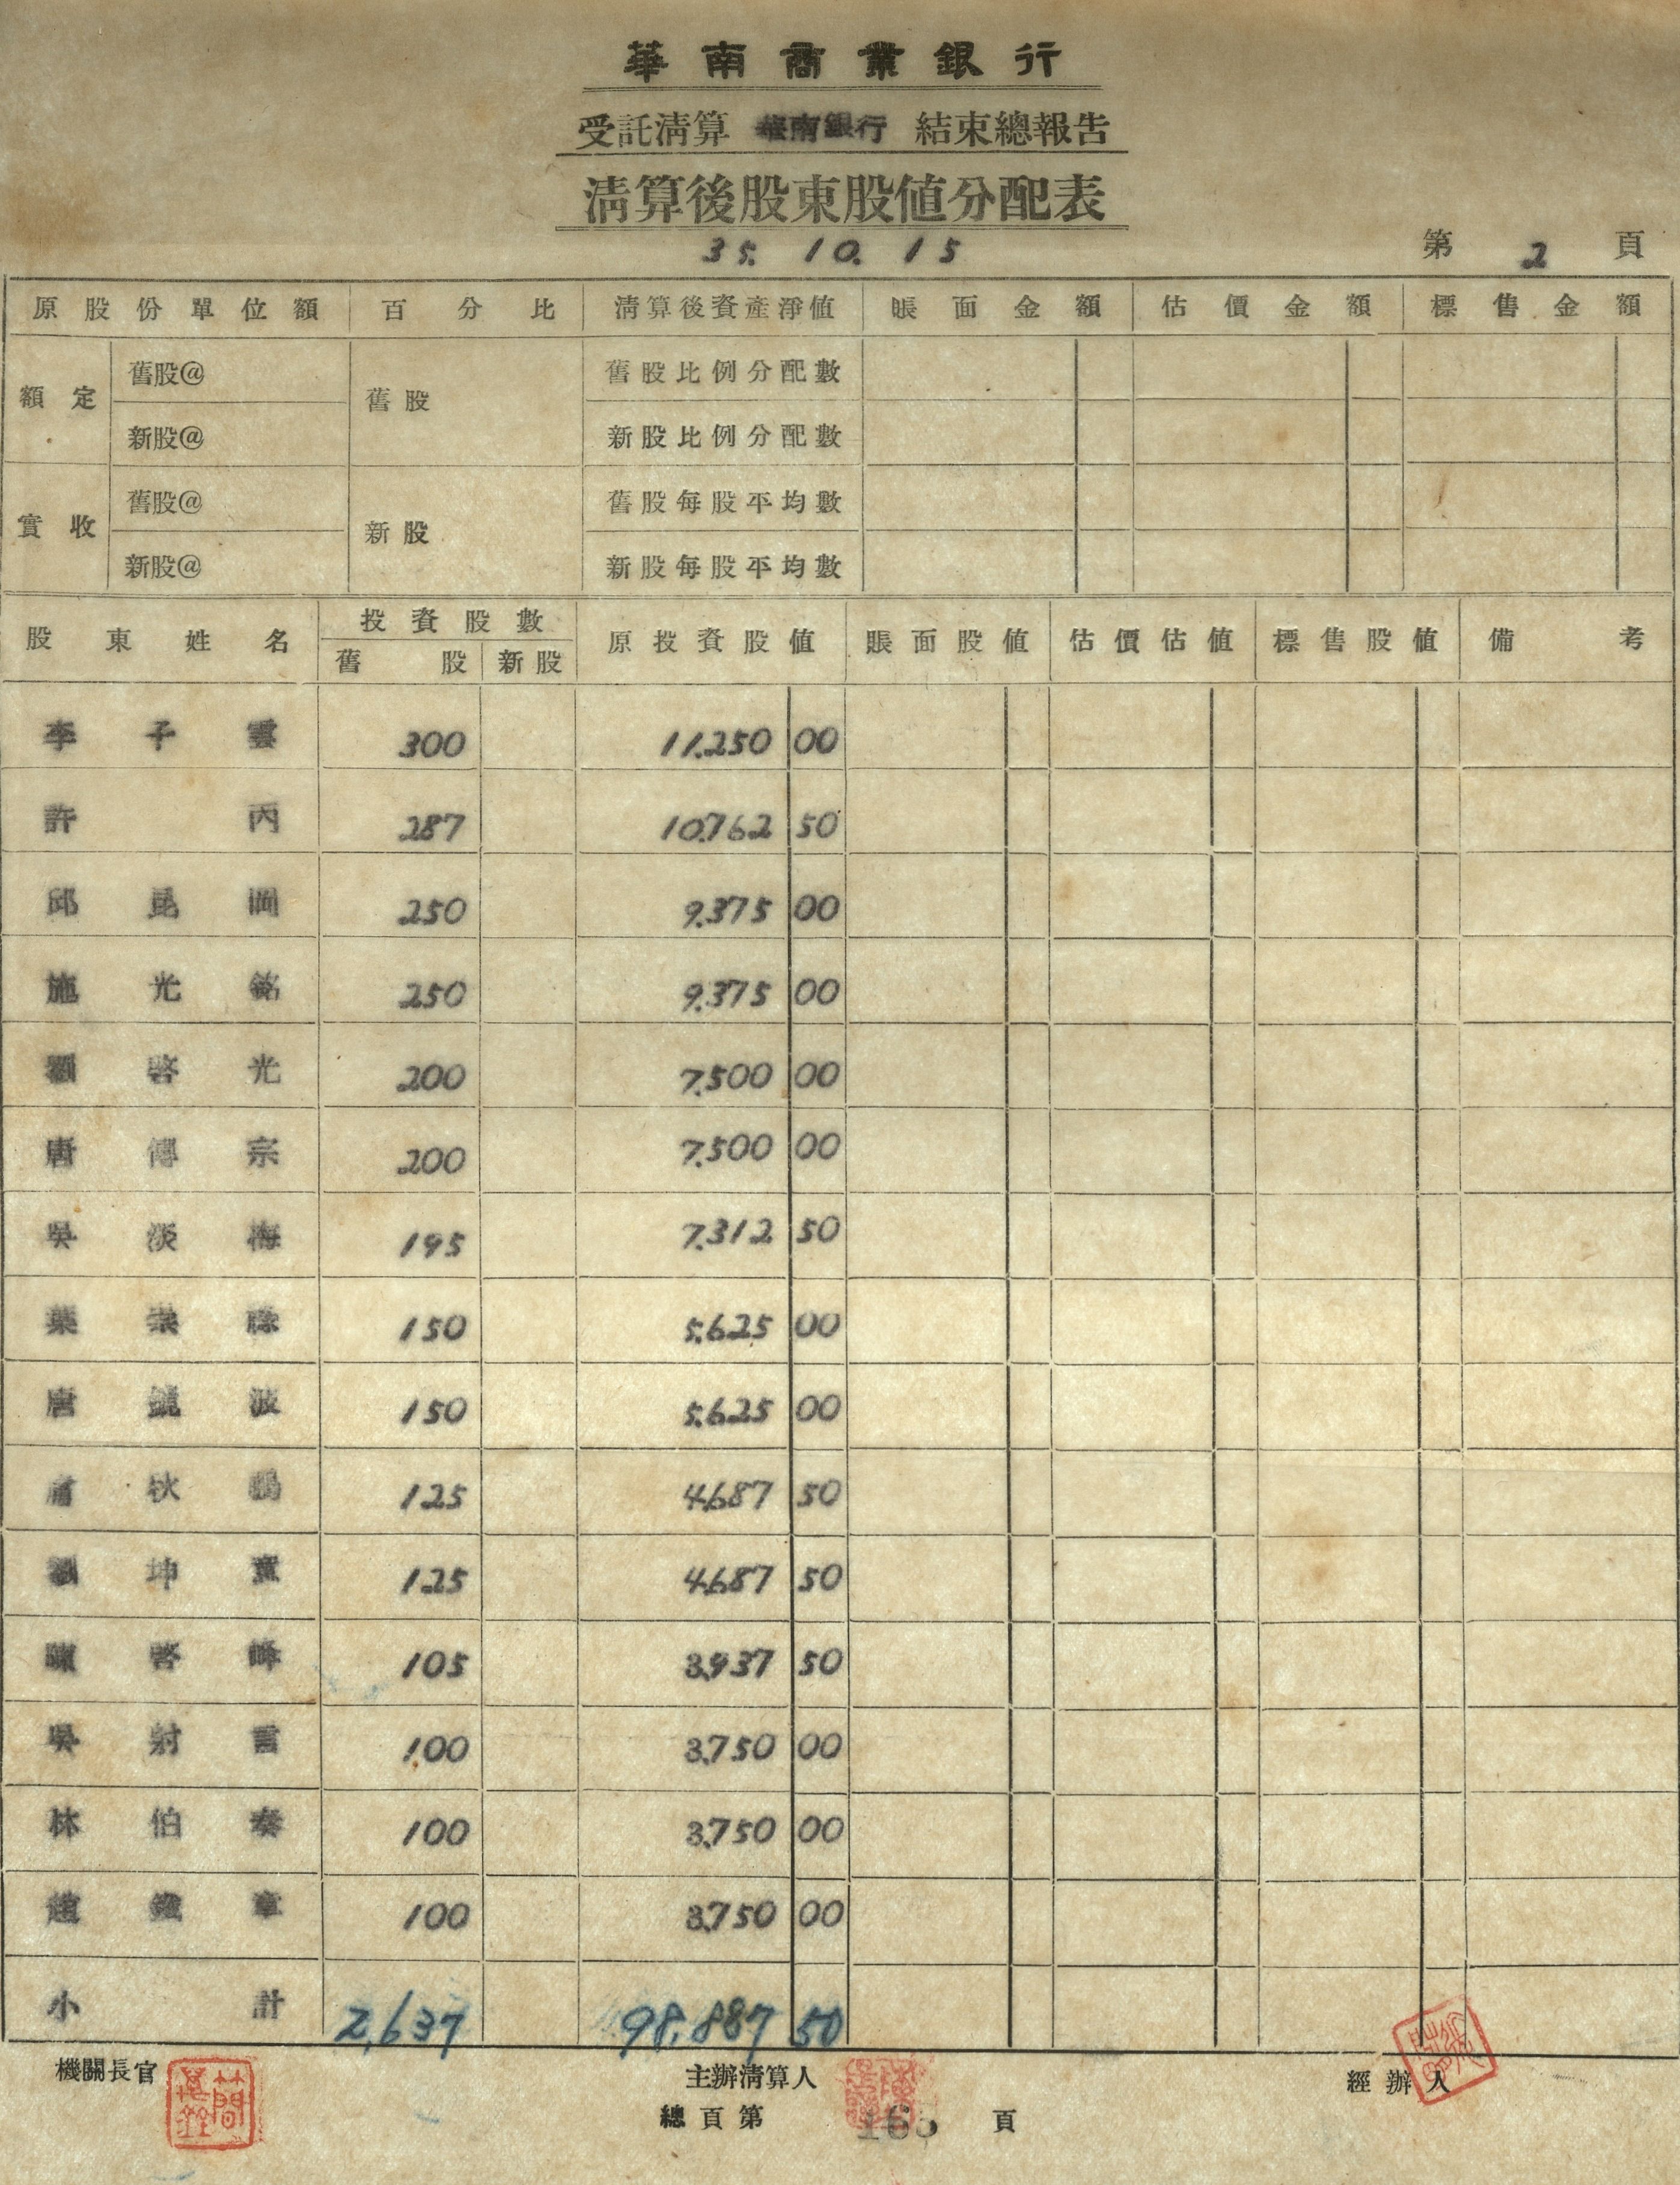 華南商業銀行
受託清算 華南銀行 結束總報告
清算後股東股值分配表
35. 10. 15
第 2 頁
原股份單位額 百分比 清算後資產淨值 賬面金額 估價金額 標售金額
額定 舊股@ 舊股 舊股比例分配數
新股@ 新股比例分配數
實收 舊股@ 新股 舊股每股平均數
新股@ 新股每股平均數
股東姓名 投資股數 原投資股值 賬面股值 估價估值 標售股值 備考
舊股 新股
李子雲 300 11.250 00
許丙 287 10.762 50
邱昆岡 250 9.375 00
施光銘 250 9.375 00
劉啓光 200 7.500 00
唐傳宗 200 7.500 00
吳淡梅 195 7.312 50
葉 150 5.625 00
唐 波 150 5.625 00
秋 125 4.687 50
劉坤 125 4.687 50
陳啓峰 105 3.937 50
吳 100 3.750 00
林伯奏 100 3.750 00
趙鐵章 100 3.750 00
小計 2,637 98,887 50
機關長官 主辦清算人 經辦人
總頁第 165 頁